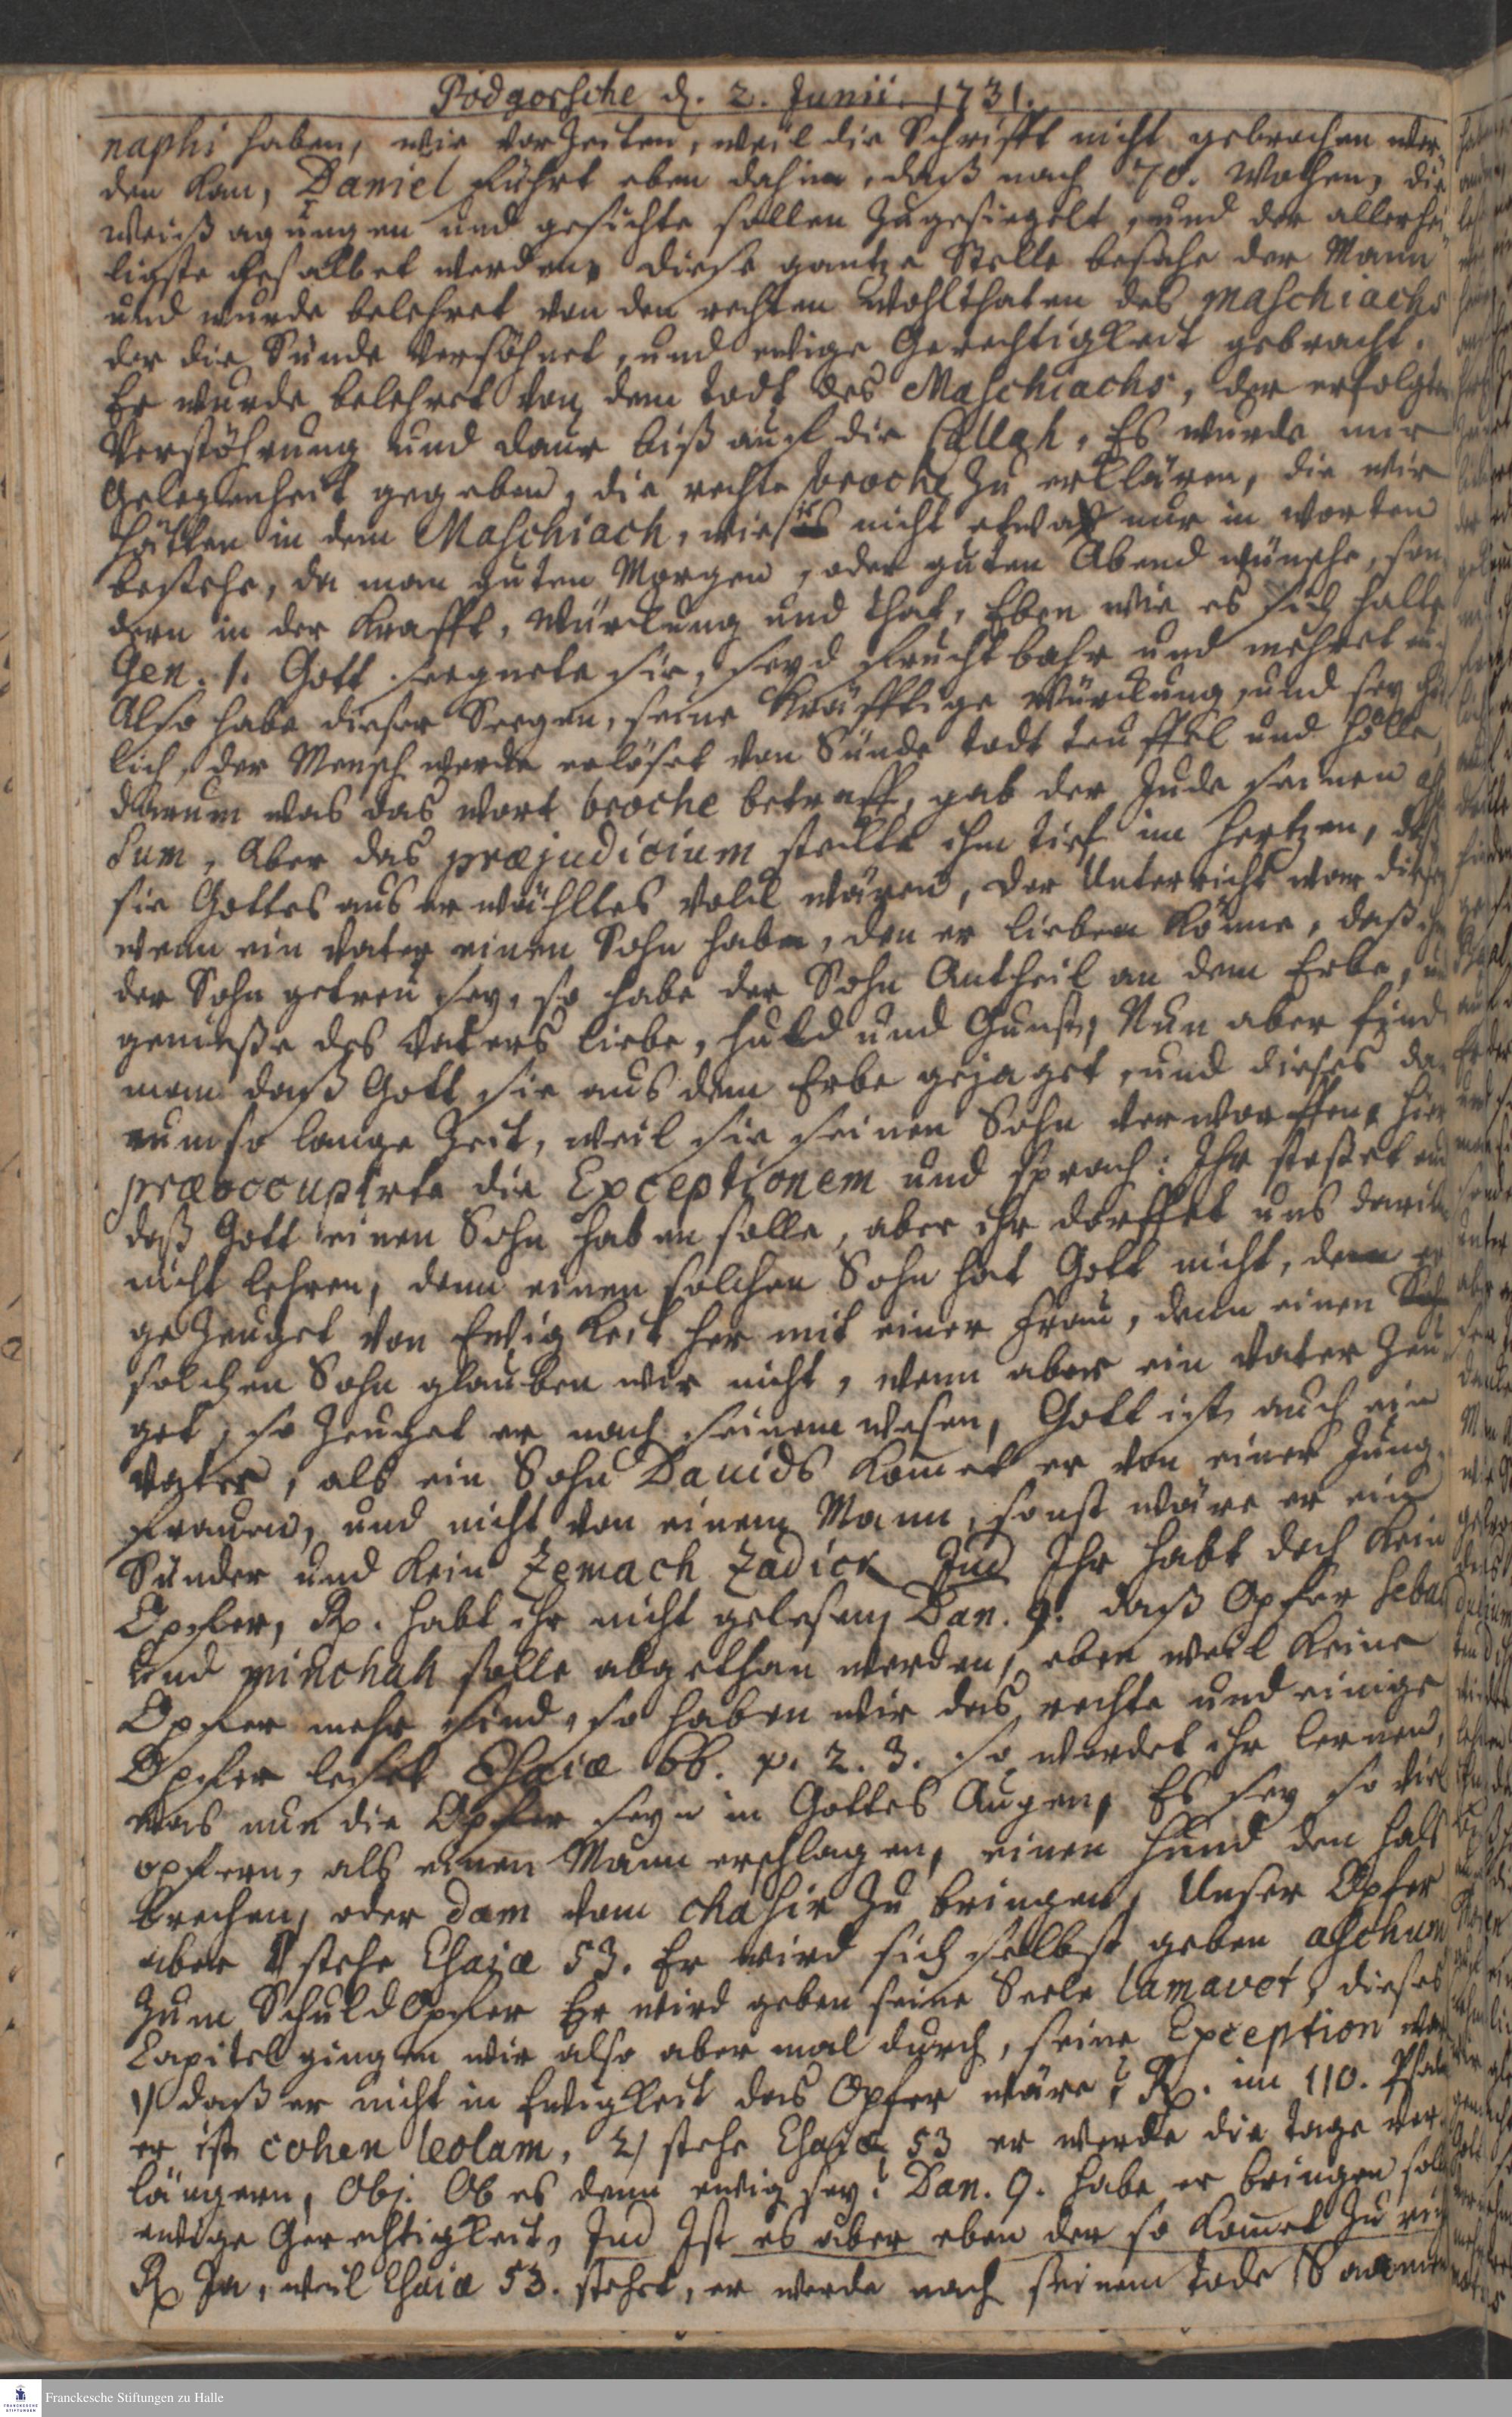 Podgorsche d. 2. Junii. 1731.
naphi haben, wie vor Zeiten, weil die Schrifft nicht gebrochen wer-
den kan, Daniel führt eben dahin, daß nach 70. Wochen, die
Weißagungen und gesichte sollen zugesiegelt, und der allerhei
ligste gesalbet werden, diese gantze Stelle besahe der Mann
und wurde belehret von den rechten Wohlthaten des Maschiachs
der die Sünde versöhnet, und ewige Gerechtigkeit gebracht.
Er wurde belehret von dem todt des Maschiachs, der erfolgten
Verstöhrung und daur biß auf die Callah, Es wurde mir
Gelegenheit gegeben, die rechte broche zu erklären, die wir
hätten in dem Maschiach, wie sie nicht etwa nur in worten
bestehe, da man guten Morgen, oder guten Abend wünsche, son
dern in der Krafft, Würckung und that, Eben wie es sich halte
Gen. 1. Gott seegnete sie, seyd fruchtbahr und mehret
Also habe dieser Seegen, seine Kräfftige Würckung, und sey
lich, der Mensch werde erlöset von Sünde todt teuffel und hölle,
darum was das wort broche betraff, gab der Jude seinen
sum, Aber das præjudicium steckte ihm tief im hertzen, daß
sie Gottes auserwähltes volck wären, der Unterricht war dieser
wenn ein vater einen Sohn habe, den er lieben könne, daß ihm
der Sohn getreu sey, so habe der Sohn Antheil an dem Erbe, und
genieße des Vaters liebe, huld und Gunst, Nun aber finde
man daß Gott sie aus dem Erbe gejaget, und dieses da-
rum so lange Zeit, weil sie seinen Sohn verworffen, hier
præoccupirte die Exceptionem und sprach: Ihr stoßet euch
daß Gott einen Sohn haben solle, aber ihr dörffet uns darin
nicht lehren, denn einen solchen Sohn hat Gott nicht, den er
gezeuget von Ewigkeit her mit einer Frau, denn einen
solchen Sohn glauben wir nicht, wenn aber ein Vater zeu-
get, so zeuget er nach seinem wesen, Gott ist auch ein
Vater, als ein Sohn Davids komet er von einer Jung-
frauen, und nicht von einem Mann, sonst wäre er ein
Sünder und kein Zemach Zadick Jud Ihr habt doch kein
Opfer, Rp. habt ihr nicht gelesen Dan. 9. daß Opfer sebach
und minchah solle abgethan werden, eben weil keine
Opfer mehr sind, so haben wir das rechte und einige
Opfer leset Esaiæ 66. p. 2. 3. so werdet ihr lernen,
was nun die Opfer seyn in Gottes Augen, Es sey so viel
opfern, als einen Mann erschlagen, einen hund den hals
brechen, oder dam vom chasir zu bringen, Unser Opfer
aber stehe Esaiæ 53. Er wird sich selbst geben aschum
zum Schuldopfer Er wird geben seine Seele lamavet, dieses
Capitel gingen wir also aber mal durch, seine Exception war
1) daß er nicht in Ewigkeit das Opfer wäre? Rp. im 110. Psalm
er ist cohen leolam, 2) stehe Esaiæ 53 er werde die tage ver-
längern, Obj. Ob es denn ewig sey? Dan. 9. habe er bringen sollen
ewige Gerechtigkeit, Jud Ist es aber eben der so komet zu
Rp Ja, weil Esaiæ 53. stehet, er werde nach seinem tode Saamen
Franckesche Stiftungen zu Halle